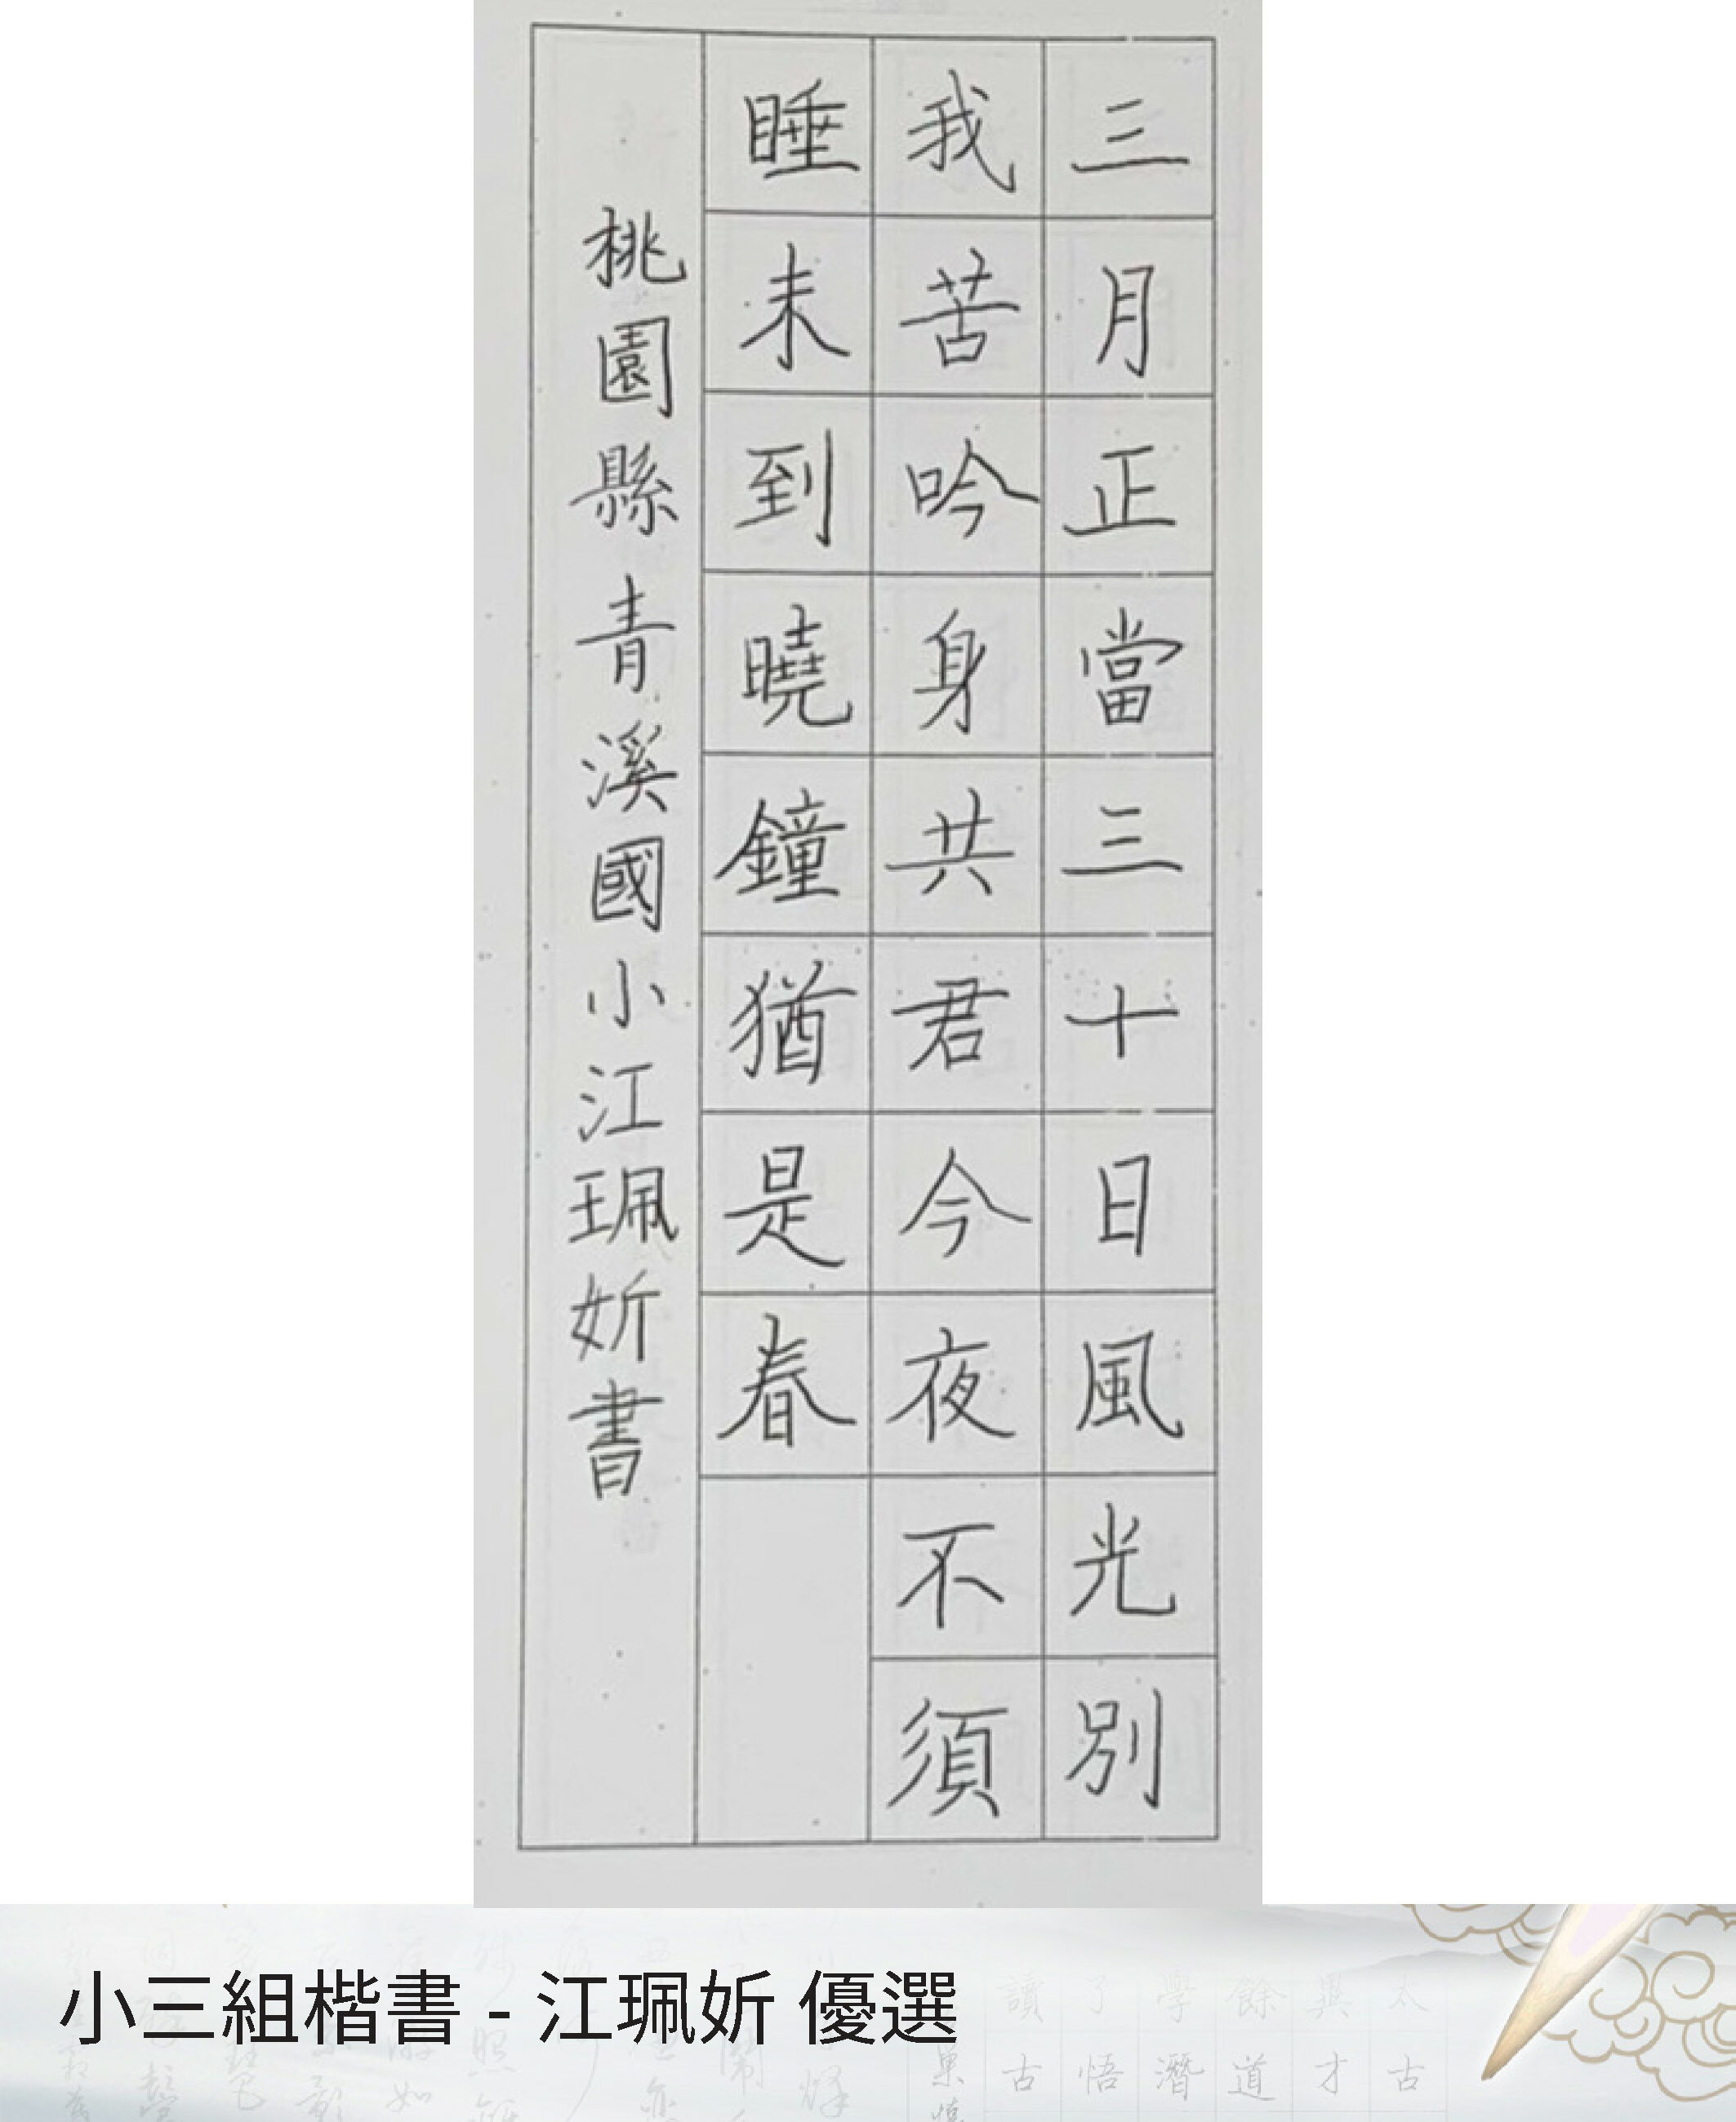 三月正當三十日風光別
我苦吟身共君今夜不須
睡未到曉鐘猶是春
桃園縣青溪國小江珮妡書
小三組楷書 - 江珮妡 優選
讀了學餘與太
古悟潛道才古